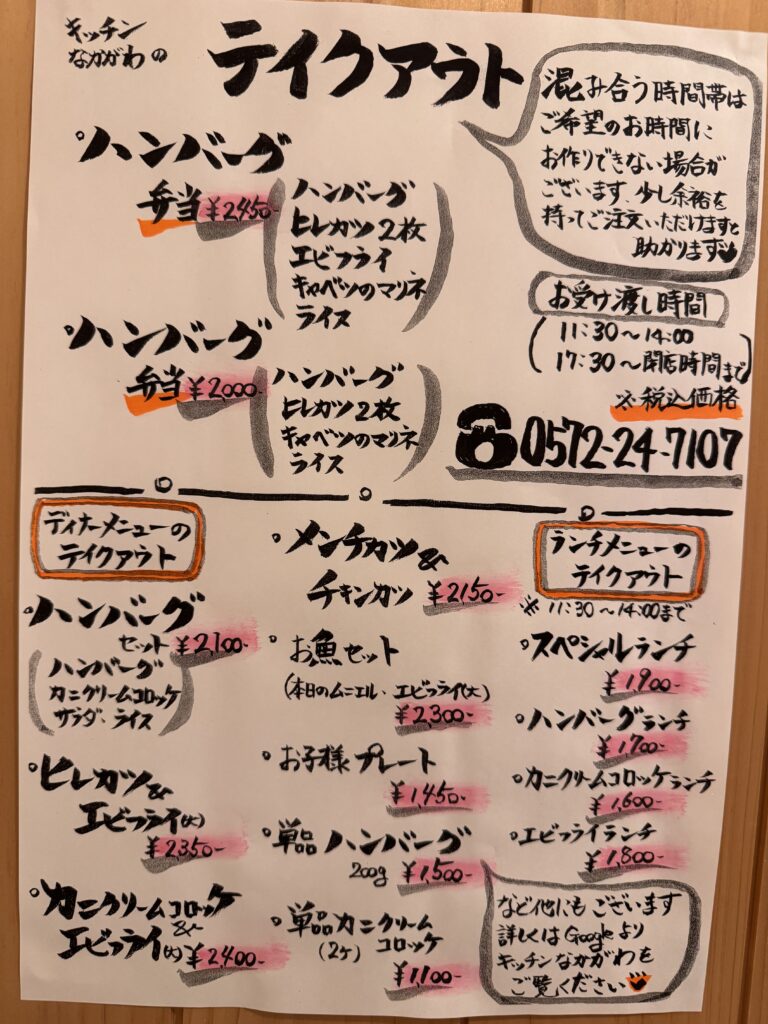 キッチン
なかがわの
テイクアウト
混み合う時間帯は
ご希望のお時間に
お作りできない場合が
ございます、少し余裕を
持ってご注文いただけますと
助かります
お受け渡し時間
11:30〜14:00
17:30〜閉店時間まで
※税込価格
0572-24-7107
ハンバーグ
弁当 ¥2450-
ハンバーグ
ヒレカツ2枚
エビフライ
キャベツのマリネ
ライス
ハンバーグ
弁当 ¥2000-
ハンバーグ
ヒレカツ2枚
キャベツのマリネ
ライス
ディナーメニューの
テイクアウト
ハンバーグ
セット ¥2,100-
ハンバーグ
カニクリームコロッケ
サラダ、ライス
ヒレカツ&
エビフライ(大)
¥2350-
カニクリームコロッケ
&
エビフライ(大) ¥2,400-
メンチカツ&
チキンカツ ¥2150-
お魚セット
(本日のムニエル、エビフライ(大)
¥2,300-
お子様プレート
¥1,450-
単品ハンバーグ
200g ¥1,500-
単品カニクリーム
(2ヶ) コロッケ
¥1,100-
ランチメニューの
テイクアウト
※11:30〜14:00まで
スペシャルランチ
¥1900-
ハンバーグランチ
¥1,700-
カニクリームコロッケランチ
¥1,600-
エビフライランチ
¥1,800-
など他にもございます
詳しくはGoogleより
キッチンなかがわを
ご覧ください